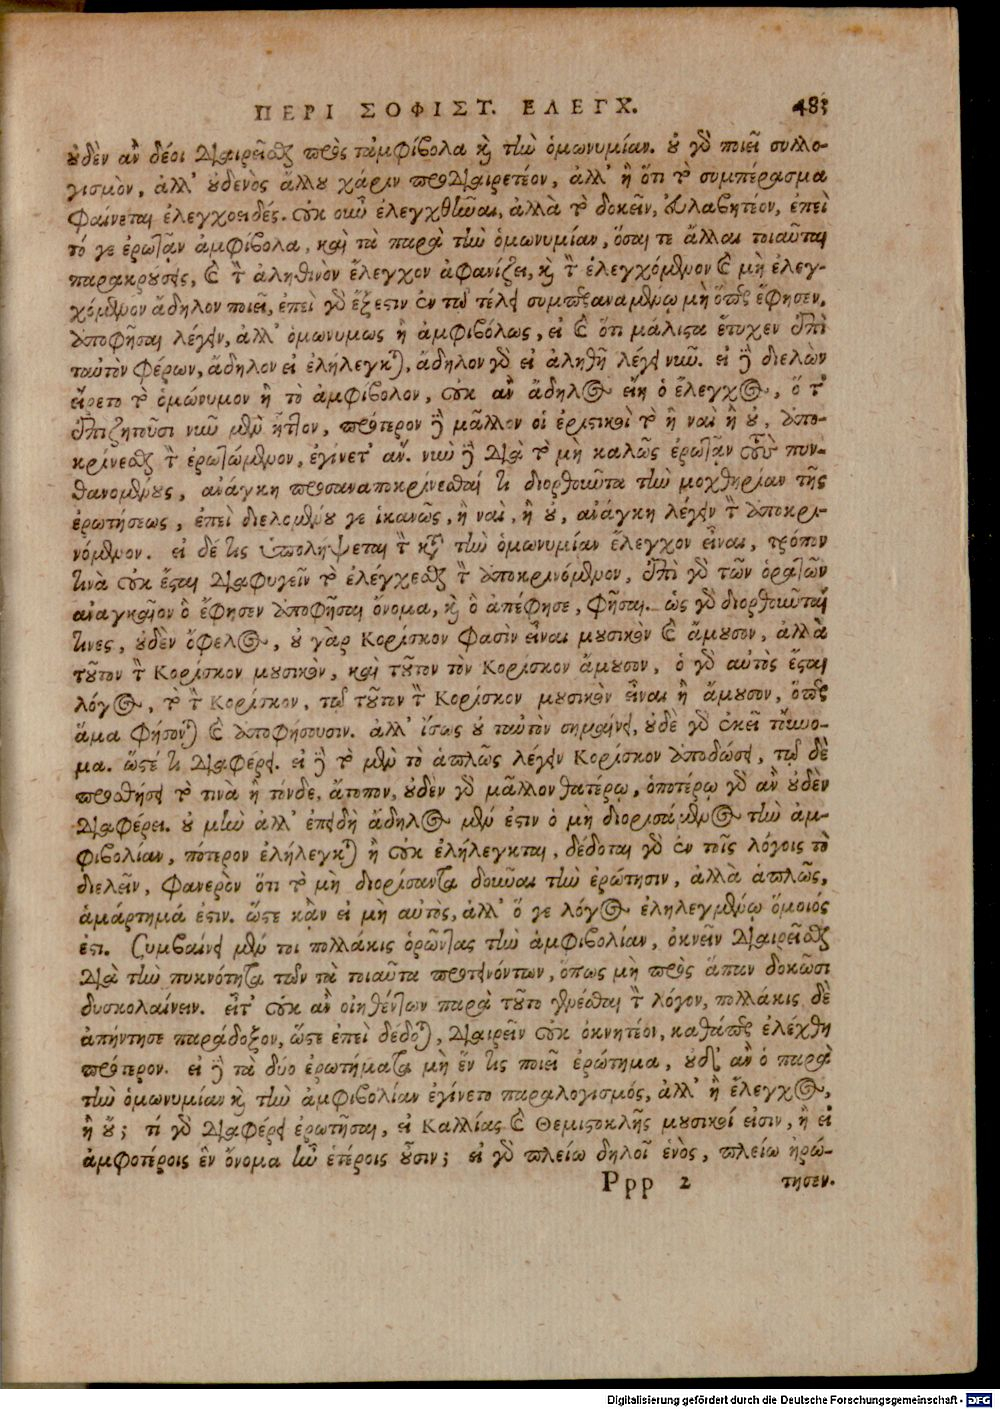 ΠΕΡΙ ΣΟΦΙΣΤ. ΕΛΕΓΧ. 483
οὐδὲν ἂν δέοι διαιρεῖσθαι πρὸς τἀμφίβολα καὶ τὴν ὁμωνυμίαν. οὐ γὰρ ποιεῖ συλλο-
γισμὸν, ἀλλ' οὐδενὸς ἄλλου χάριν προδιαιρετέον, ἀλλ' ἢ ὅτι τὸ συμπέρασμα
φαίνεται ἐλεγχοειδές. οὐκ οὖν ἐλεγχθῆναι, ἀλλὰ τὸ δοκεῖν, εὐλαβητέον, ἐπεὶ
τό γε ἐρωτᾶν ἀμφίβολα, καὶ τὰ παρὰ τὴν ὁμωνυμίαν, ὅσαι τε ἄλλαι τοιαῦται
παρακρούσεις, καὶ τὸν ἀληθινὸν ἔλεγχον ἀφανίζει, καὶ τὸν ἐλεγχόμενον καὶ μὴ ἐλεγ-
χόμενον ἄδηλον ποιεῖ, ἐπεὶ γὰρ ἔξεστιν ἐν τῷ τέλει συμπεραναμένῳ μὴ ὅπερ ἔφησεν,
ἀποφῆσαι λέγειν, ἀλλ' ὁμωνύμως ἢ ἀμφιβόλως, εἰ καὶ ὅτι μάλιστα ἔτυχεν ἐπὶ
ταὐτὸν φέρων, ἄδηλον εἰ ἐλήλεγκται, ἄδηλον γὰρ εἰ ἀληθῆ λέγει νῦν. εἰ δὲ διελὼν
εἴρετο τὸ ὁμώνυμον ἢ τὸ ἀμφίβολον, οὐκ ἂν ἄδηλος εἴη ὁ ἔλεγχος, ὅ τ'
ἐπιζητοῦσι νῦν μὲν ἧττον, πρότερον δὲ μᾶλλον οἱ ἐριστικοὶ τὸ ἢ ναὶ ἢ οὐ, ἀπο-
κρίνεσθαι τὸν ἐρωτώμενον, ἐγίνετ' ἄν. νῦν δὲ διὰ τὸ μὴ καλῶς ἐρωτᾶν τοὺς πυν-
θανομένους, ἀνάγκη προσαναποκρίνεσθαί τι διορθοῦντα τὴν μοχθηρίαν τῆς
ἐρωτήσεως, ἐπεὶ διελομένου γε ἱκανῶς, ἢ ναι, ἢ οὐ, ἀνάγκη λέγειν τὸν ἀποκρι-
νόμενον. εἰ δέ τις ὑπολήψεται τὸν κατὰ τὴν ὁμωνυμίαν ἔλεγχον εἶναι, τρόπον
τινὰ οὐκ ἔσται διαφυγεῖν τὸ ἐλέγχεσθαι τὸν ἀποκρινόμενον, ἐπὶ γὰρ τῶν ὁρατῶν
ἀναγκαῖον ὃ ἔφησεν ἀποφῆσαι ὄνομα, καὶ ὃ ἀπέφησε, φῆσαι. ὡς γὰρ διορθοῦνταί
τινες, οὐδὲν ὄφελος, οὐ γὰρ Κορίσκον φασὶν εἶναι μουσικὸν καὶ ἄμουσον, ἀλλὰ
τοῦτον τὸν Κορίσκον μουσικὸν, καὶ τοῦτον τὸν Κορίσκον ἄμουσον, ὁ γὰρ αὐτὸς ἔσται
λόγος, τὸ τὸν Κορίσκον, τῷ τοῦτον τὸν Κορίσκον μουσικὸν εἶναι ἢ ἄμουσον, ὅπερ
ἅμα φήσουσι καὶ ἀποφήσουσιν. ἀλλ' ἴσως οὐ ταὐτὸν σημαίνει, οὐδὲ γὰρ ἐκεῖ τοὔνο-
μα. ὥστέ τι διαφέρει. εἰ δὲ τὸ μὲν τὸ ἁπλῶς λέγειν Κορίσκον ἀποδώσει, τῷ δὲ
προσθήσει τὸ τινὰ ἢ τόνδε, ἄτοπον, οὐδὲν γὰρ μᾶλλον θατέρῳ, ὁποτέρῳ γὰρ ἂν οὐδὲν
διαφέρει. οὐ μὴν ἀλλ' ἐπειδὴ ἄδηλος μέν ἐστιν ὁ μὴ διορισάμενος τὴν ἀμ-
φιβολίαν, πότερον ἐλήλεγκται ἢ οὐκ ἐλήλεγκται, δέδοται γὰρ ἐν τοῖς λόγοις τὸ
διελεῖν, φανερὸν ὅτι τὸ μὴ διορίσαντα δοῦναι τὴν ἐρώτησιν, ἀλλὰ ἁπλῶς,
ἁμάρτημά ἐστιν. ὥστε κἂν εἰ μὴ αὐτὸς, ἀλλ' ὅ γε λόγος ἐληλεγμένῳ ὅμοιός
ἐστι. Συμβαίνει μέν τοι πολλάκις ὁρῶντας τὴν ἀμφιβολίαν, ὀκνεῖν διαιρεῖσθαι
διὰ τὴν πυκνότητα τῶν τὰ τοιαῦτα προτεινόντων, ὅπως μὴ πρὸς ἅπαν δοκῶσι
δυσκολαίνειν. εἶτ' οὐκ ἂν οἰηθέντων παρὰ τοῦτο γενέσθαι τὸν λόγον, πολλάκις δὲ
ἀπήντησε παράδοξον, ὥστε ἐπεὶ δέδοται, διαιρεῖν οὐκ ὀκνητέον, καθάπερ ἐλέχθη
πρότερον. εἰ δὲ τὰ δύο ἐρωτήματα μὴ ἕν τις ποιεῖ ἐρώτημα, οὐδ' ἂν ὁ παρὰ
τὴν ὁμωνυμίαν καὶ τὴν ἀμφιβολίαν ἐγίνετο παραλογισμός, ἀλλ' ἢ ἔλεγχος,
ἢ οὔ; τί γὰρ διαφέρει ἐρωτῆσαι, εἰ Καλλίας καὶ Θεμιστοκλῆς μουσικοί εἰσιν, ἢ εἰ
ἀμφοτέροις ἓν ὄνομα ἦν ἑτέροις οὖσιν; εἰ γὰρ πλείω δηλοῖ ἑνὸς, πλείω ἠρώ-
Ppp 2 τησεν.
Digitalisierung gefördert durch die Deutsche Forschungsgemeinschaft - DFG